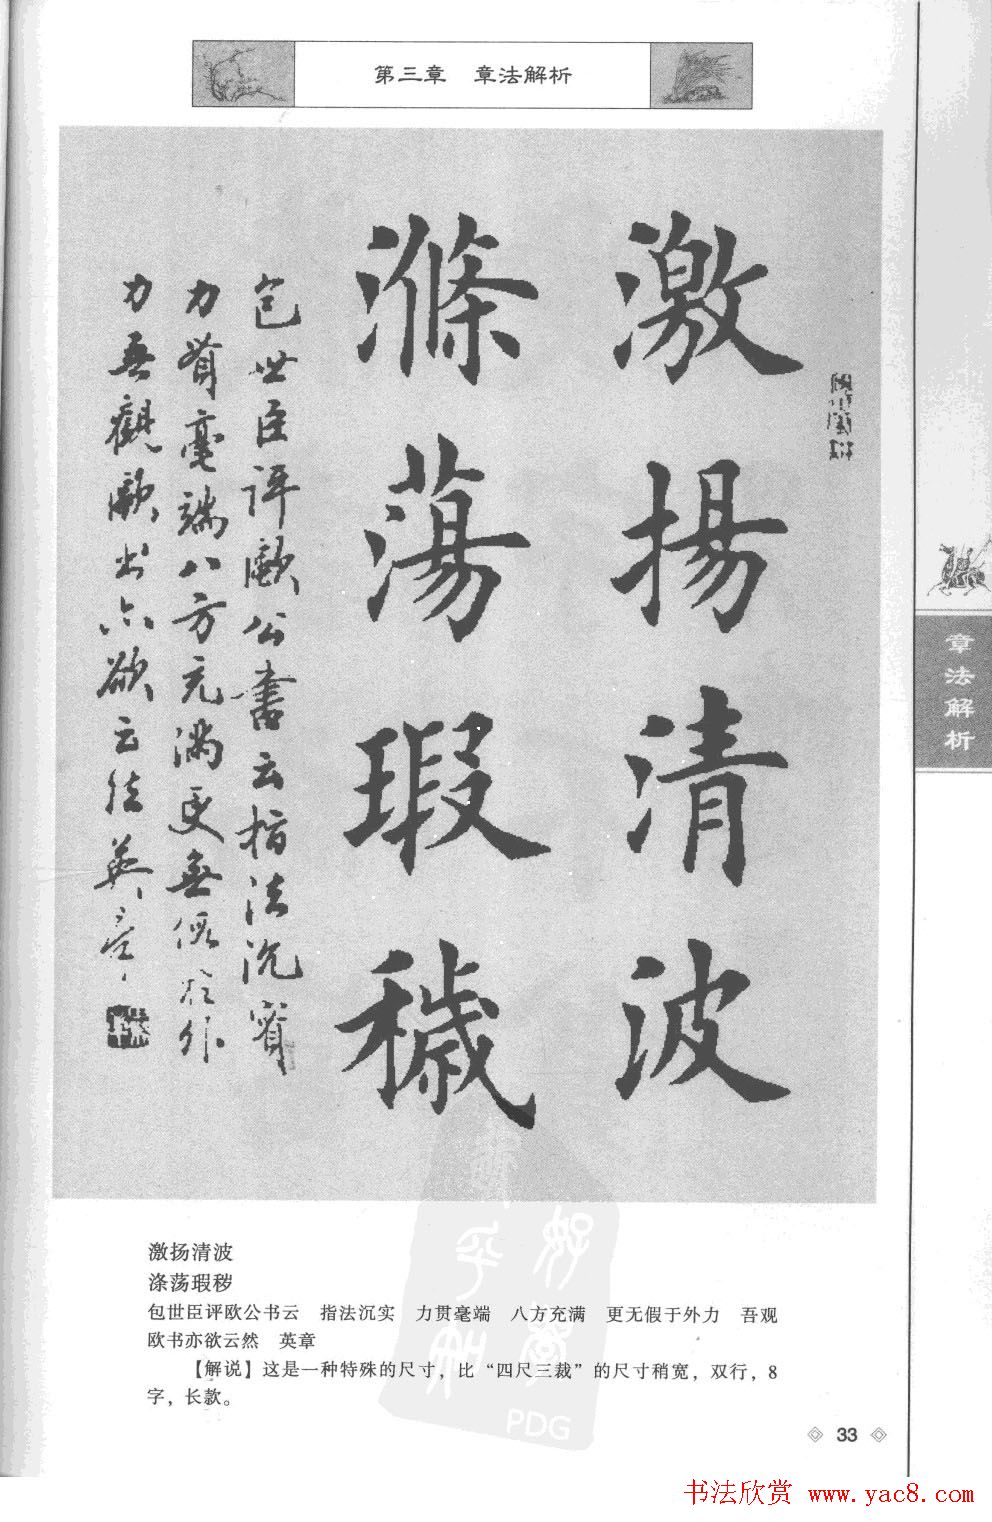 第三章 章法解析
激揚清波
滌蕩瑕穢
包世臣評歐公書云指法沉實
力貫毫端八方充滿更無假於外
力吾觀歐書亦欲云然英章
章法解析
激扬清波
涤荡瑕秽
包世臣评欧公书云 指法沉实 力贯毫端 八方充满 更无假于外力 吾观
欧书亦欲云然 英章
【解说】这是一种特殊的尺寸，比“四尺三裁”的尺寸稍宽，双行，8
字，长款。
PDG
33
书法欣赏 www.yac8.com